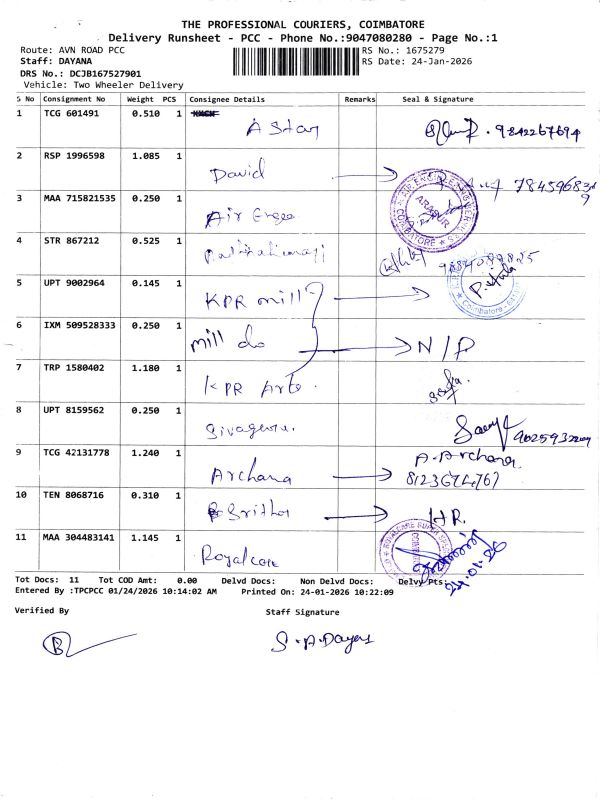 THE PROFESSIONAL COURIERS, COIMBATORE
Delivery Runsheet - PCC - Phone No.:9047080280 - Page No.:1
Route: AVN ROAD PCC
RS No.: 1675279
Staff: DAYANA
RS Date: 24-Jan-2026
DRS No.: DCJB167527901
Vehicle: Two Wheeler Delivery
S No Consignment No Weight PCS Consignee Details Remarks Seal & Signature
1 TCG 601491 0.510 1 A Star 9842267694
2 RSP 1996598 1.085 1 David
3 MAA 715821535 0.250 1 Air Engee
4 STR 867212 0.525 1
5 UPT 9002964 0.145 1 KPR mill
6 IXM 509528333 0.250 1 mill do N/P
7 TRP 1580402 1.180 1 KPR Arts
8 UPT 8159562 0.250 1 Sivaguru.
9 TCG 42131778 1.240 1 Archana A. Archana
10 TEN 8068716 0.310 1 HR.
11 MAA 304483141 1.145 1 Royalcare
Tot Docs: 11 Tot COD Amt: 0.00 Delvd Docs: Non Delvd Docs: Delvy Pts:
Entered By :TPCPCC 01/24/2026 10:14:02 AM Printed On: 24-01-2026 10:22:09
Verified By Staff Signature